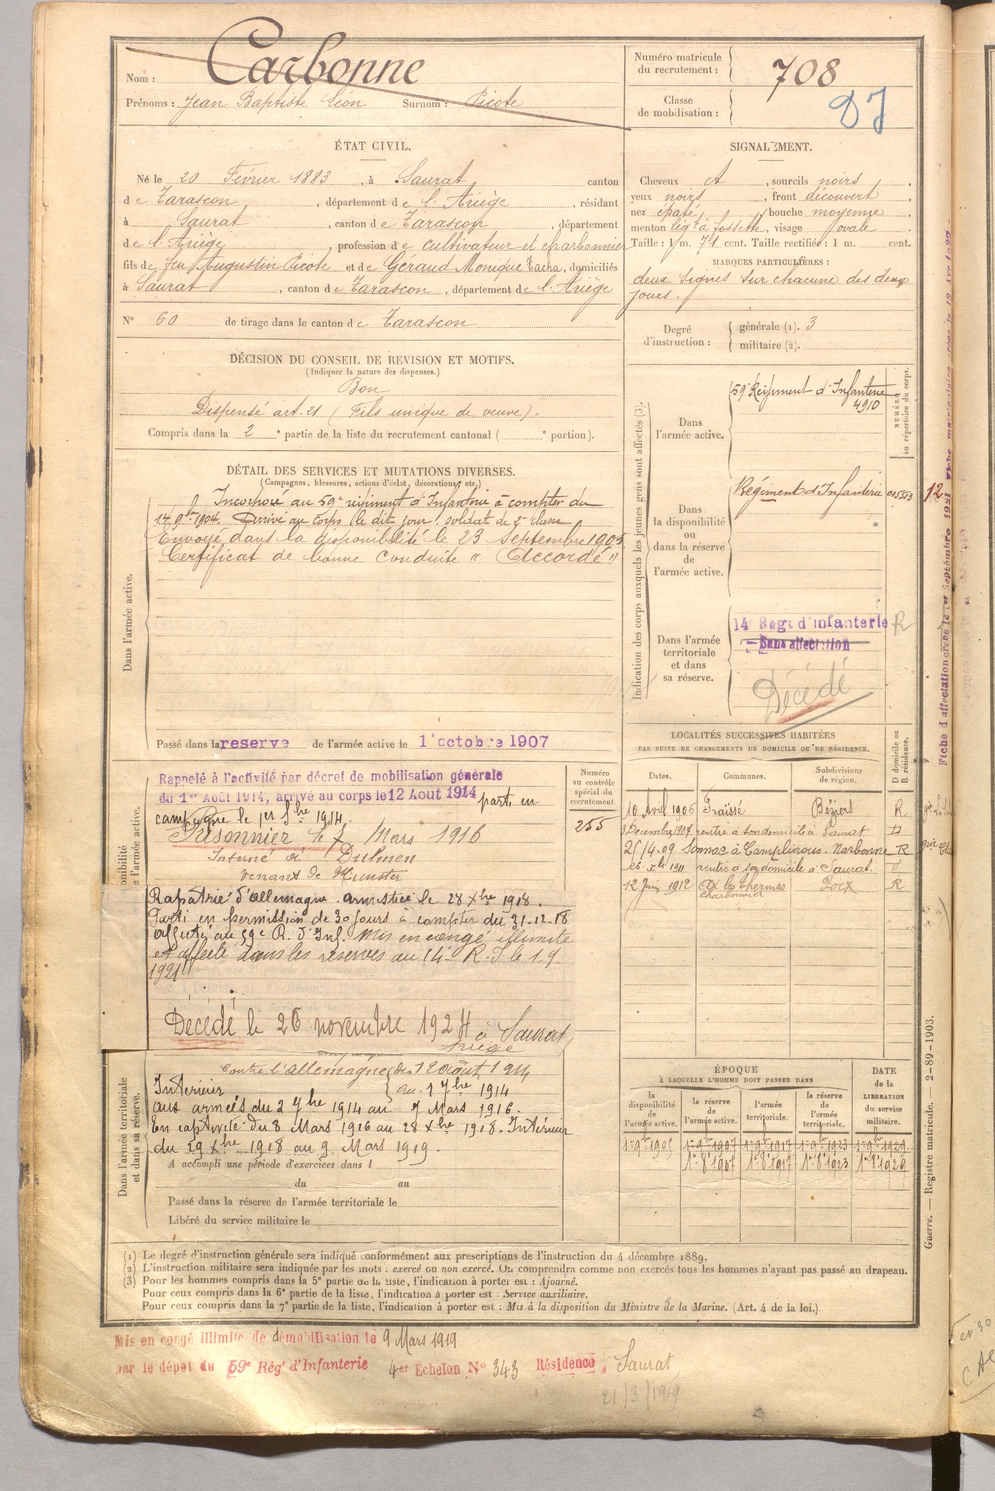 Nom : Carbonne
Prénoms : Jean Baptiste Léon Surnom : Picote
Numéro matricule du recrutement : 708
Classe de mobilisation :
ÉTAT CIVIL.
Né le 20 Février 1883, à Saurat canton
de Tarascon, département de l'Ariège, résidant
à Saurat, canton de Tarascon, département
de l'Ariège, profession de cultivateur et charbonnier
fils de feu Augustin Picote et de Géraud Monique Tacha, domiciliés
à Saurat, canton de Tarascon, département de l'Ariège
N° 60 de tirage dans le canton de Tarascon
SIGNALEMENT.
Cheveux ct, sourcils noirs,
yeux noirs, front découvert
nez épaté, bouche moyenne
menton lég.t à fossette, visage ovale
Taille : 1 m. 71 cent. Taille rectifiée : 1 m. cent.
MARQUES PARTICULIÈRES :
deux signes sur chacune des deux
joues.
Degré d'instruction : générale (1). 3
militaire (2).
DÉCISION DU CONSEIL DE REVISION ET MOTIFS.
(Indiquer la nature des dispenses.)
Bon
Dispensé art. 21 (Fils unique de veuve).
Compris dans la 2e partie de la liste du recrutement cantonal ( e portion).
DÉTAIL DES SERVICES ET MUTATIONS DIVERSES.
(Campagnes, blessures, actions d'éclat, décorations, etc.)
Dans l'armée active.
Incorporé au 59e régiment d'Infanterie à compter du
14 9bre 1904. Arrivé au corps le dit jour, soldat de 2e classe
Envoyé dans la disponibilité le 23 Septembre 1905
Certificat de bonne conduite " Accordé "
Passé dans la reserve de l'armée active le 1 octobre 1907
Indication des corps auxquels les jeunes gens sont affectés (3).
NUMÉRO au répertoire du corps.
Dans l'armée active.
59e Régiment d'Infanterie
4910
Dans la disponibilité ou dans la réserve de l'armée active.
Régiment d'Infanterie
12
Dans l'armée territoriale et dans sa réserve.
14 Regt d'infanterie R
Sans affectation
Décédé
Rappelé à l'activité par décret de mobilisation générale
du 1er Août 1914, arrivé au corps le 12 Aout 1914 parti en
campagne le 1er 7bre 1914.
Prisonnier le 7 Mars 1916
Interné à Dulmen
venant de Munster
Rapatrié d'Allemagne. armistice le 28 Xbre 1918.
Parti en permission de 30 jours à compter du 31-12-18
affecté au 59e R. d'Inf. Mis en congé illimité
et affecté dans les réserves au 14e R.I le 1.9
1921
Décédé le 26 novembre 1924 à Saurat
Ariège
Numéro au contrôle spécial du recrutement.
255
LOCALITÉS SUCCESSIVES HABITÉES
PAR SUITE DE CHANGEMENTS DE DOMICILE OU DE RÉSIDENCE.
Dates. Communes. Subdivisions de région. D domicile ou R résidence.
10 Avril 1906 Fraïssé Béziers R
Decembre 1907 rentré à son domicile à Saurat D
25/4.09 à Camplinous. Narbonne R
1911 rentré à son domicile à Saurat.
12 Juin 1912 Ax les thermes Foix R
charbonnier
Dans l'armée territoriale et dans sa réserve.
Contre l'allemagne du 12 août 1914
Intérieur au 1 7bre 1914
aux armées du 2 7bre 1914 au 7 Mars 1916.
En captivité du 8 Mars 1916 au 28 Xbre 1918. Intérieur
du 29 Xbre 1918 au 9 Mars 1919.
A accompli une période d'exercices dans l
du au
Passé dans la réserve de l'armée territoriale le
Libéré du service militaire le
ÉPOQUE
À LAQUELLE L'HOMME DOIT PASSER DANS
la disponibilité de l'armée active. la réserve de l'armée active. l'armée territoriale. la réserve de l'armée territoriale.
DATE de la LIBÉRATION du service militaire.
1er 9bre 1905 1er 9bre 1907 1er 9bre 1917 1er 9bre 1923 1er 9bre 1929
1er 8bre 1907 1er 8bre 1917 1er 8bre 1923 1er 8bre 1929
Guerre. — Registre matricule. 2-89-1903.
(1) Le degré d'instruction générale sera indiqué conformément aux prescriptions de l'instruction du 4 décembre 1889.
(2) L'instruction militaire sera indiquée par les mots : exercé ou non exercé. On comprendra comme non exercés tous les hommes n'ayant pas passé au drapeau.
(3) Pour les hommes compris dans la 5e partie de la liste, l'indication à porter est : Ajourné.
Pour ceux compris dans la 6e partie de la liste, l'indication à porter est : Service auxiliaire.
Pour ceux compris dans la 7e partie de la liste, l'indication à porter est : Mis à la disposition du Ministre de la Marine. (Art. 4 de la loi.)
Mis en congé illimité de démobilisation le 9 Mars 1919
par le dépôt du 59e Rég' d'Infanterie 4er Echelon N° 343 Résidence : Saurat
21/3/1919